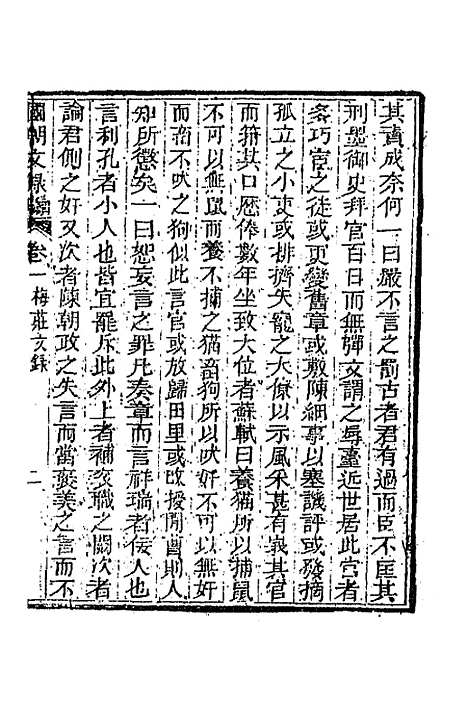 其責成奈何一曰嚴不言之罰古者君有過而臣不匡其
刑墨御史拜官百日而無彈文謂之辱臺近世居此官者
多巧宦之徒或更變舊章或敷陳細事以塞譏評或發摘
孤立之小吏或排擠失寵之大僚以示風采甚有衰其官
而箝其口歷俸數年坐致大位者蘇軾曰養猫所以捕鼠
不可以無鼠而養不捕之猫畜狗所以吠奸不可以無奸
而畜不吠之狗似此言官或放歸田里或改授閒曹則人
知所懲矣一曰恕妄言之罪凡奏章而言祥瑞者佞人也
言利孔者小人也皆宜罷斥此外上者補袞職之闕次者
論君側之奸又次者陳朝政之失言而當褒美之言而不
國朝文錄續編 卷一梅莊文錄 二